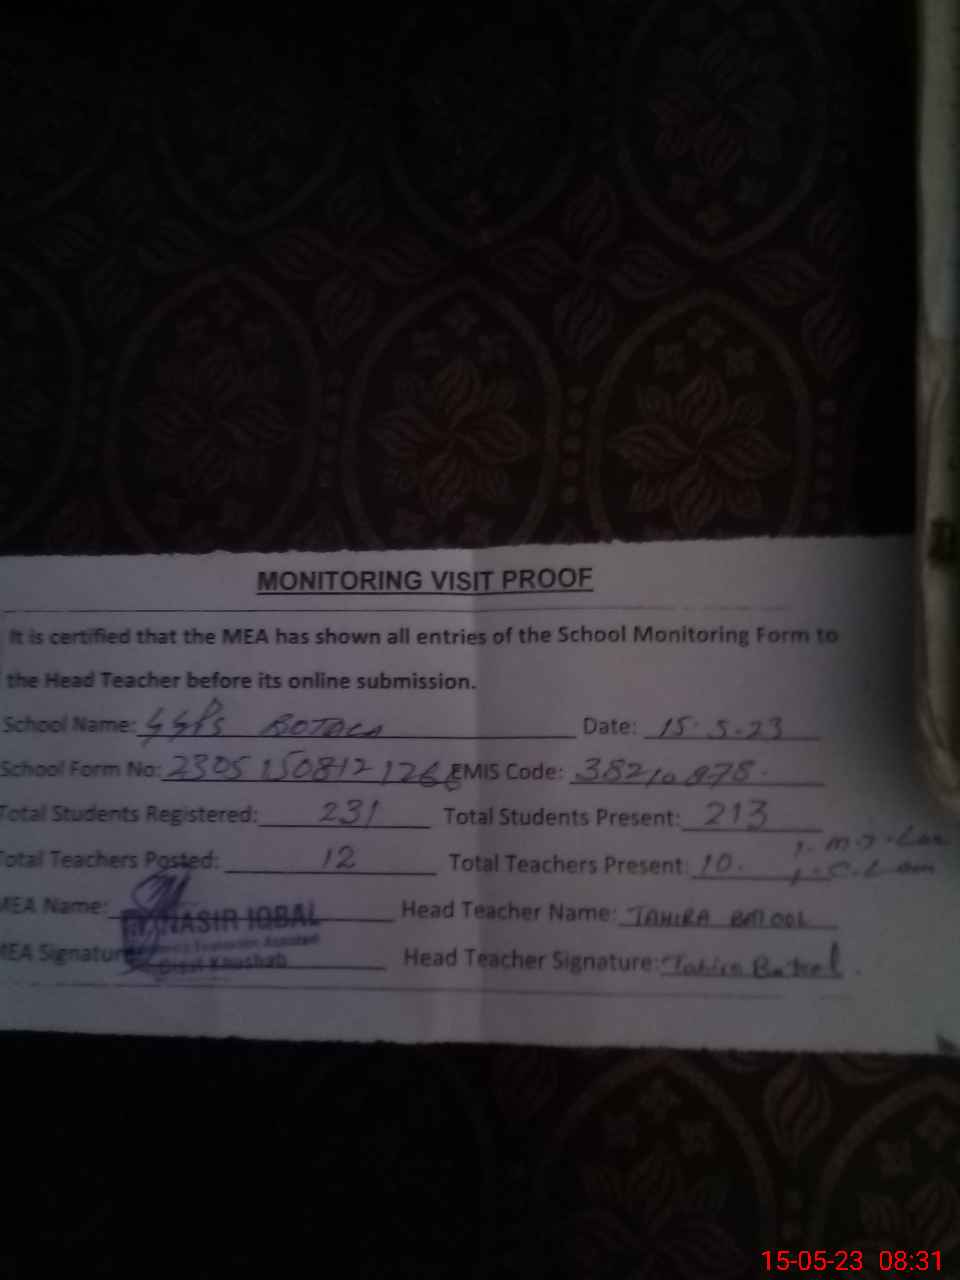 MONITORING VISIT PROOF
It is certified that the MEA has shown all entries of the School Monitoring Form to
the Head Teacher before its online submission.
School Name: GGPS BOTALA Date: 15.5.23
School Form No: EMIS Code: 38210978.
Total Students Registered: 231 Total Students Present: 213
Total Teachers Posted: 12 Total Teachers Present: 10.
MEA Name: NASIR IQBAL Head Teacher Name: TAHIRA BATOOL
MEA Signature Distt Khushab Head Teacher Signature: Tahira Batool
15-05-23 08:31